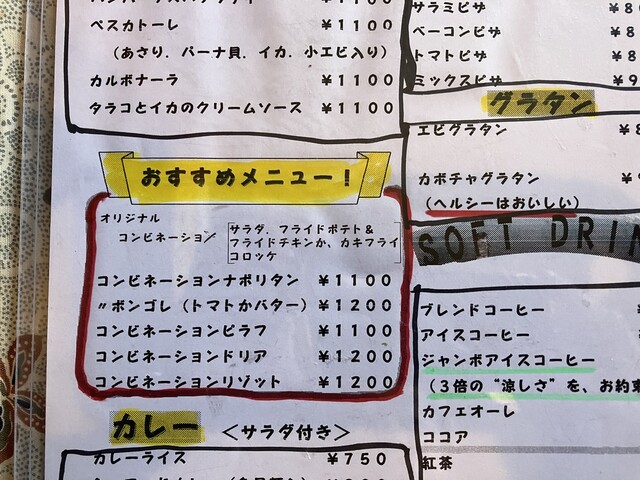 ペスカトーレ ¥1100
(あさり.パーナ貝.イカ.小エビ入り)
カルボナーラ ¥1100
タラコとイカのクリームソース ¥1100
おすすめメニュー!
オリジナル
コンビネーション
サラダ.フライドポテト&
フライドチキンか、カキフライ
コロッケ
コンビネーションナポリタン ¥1100
〃ボンゴレ(トマトかバター) ¥1200
コンビネーションピラフ ¥1100
コンビネーションドリア ¥1200
コンビネーションリゾット ¥1200
カレー <サラダ付き>
カレーライス ¥750
サラミピザ
ベーコンピザ ¥8
トマトピザ ¥8
ミックスピザ ¥9
グラタン
エビグラタン ¥8
カボチャグラタン
(ヘルシーはおいしい)
SOFT DRIN
ブレンドコーヒー
アイスコーヒー
ジャンボアイスコーヒー
(3倍の"涼しさ"を、お約束
カフェオーレ
ココア
紅茶